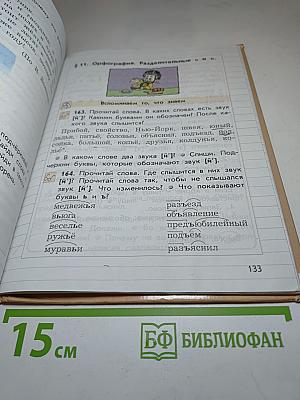 § 11. Орфография. Разделительные ь и ъ.
Вспоминаем то, что знаем
163. Прочитай слова. В каких словах есть звук
[й']? Какими буквами он обозначен? После ка-
кого звука слышится?
Прибой, свойство, Нью-Йорк, шпион, юный,
ладья, питьё, соловьи, объяснил, подъезд,
зьяна, большой, копьё, друзья, колдунья,
льё.
В каком слове два звука [й']? Спиши. Под-
черкни буквы, которые обозначают звук [й'].
164. Прочитай слова. Где слышится в них звук
[й']? Прочитай слова так, чтобы не слышался
звук [й']. Что изменилось? Что показывают
буквы ь и ъ?
медвежья разъезд
вьюга объявление
веселье предъюбилейный
ружьё подъём
муравьи разъяснил
133
15 см
БФ БИБЛИОФАН